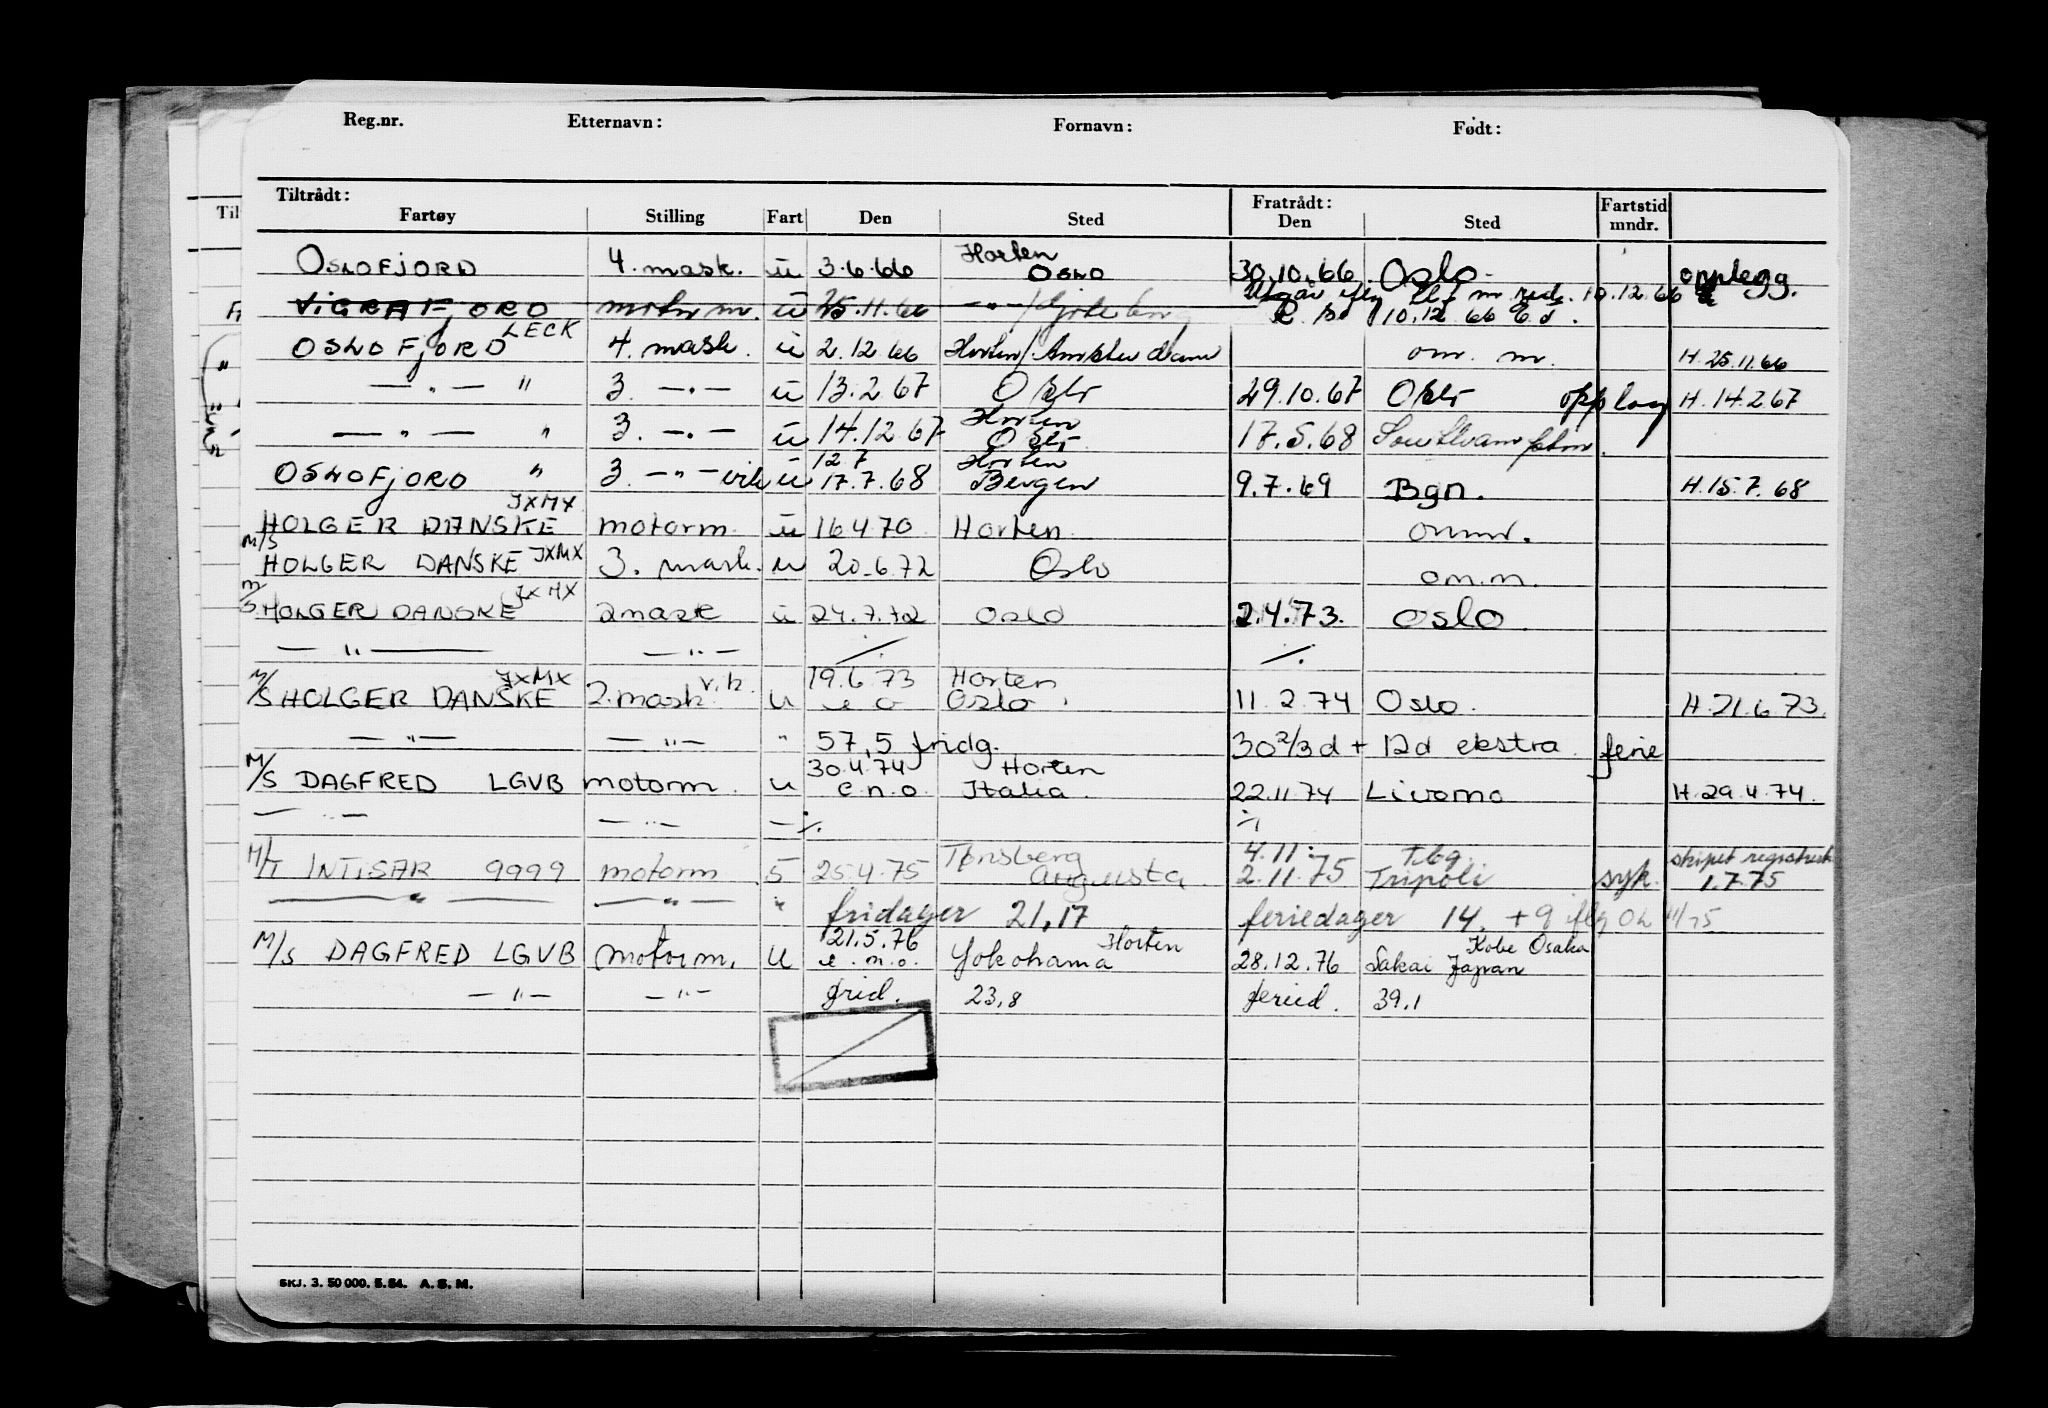 Reg.nr. Etternavn: Fornavn: Født:
Tiltrådt: Fratrådt: Fartstid
Fartøy Stilling Fart Den Sted Den Sted mndr.
Horten
OSLOFJORD 4. mask. u 3.6.66 OSLO 30.10.66 Oslo. opplegg.
Utgår iflg. m red. 10.12.66
VIGRAFJORD motorm. u 25.11.66 —"— / 10.12.66
LECK
OSLOFJORD 4. mask. u 2.12.66 Horten/Amsterdam om. m. H. 25.11.66
—"— " 3. —"— u 13.2.67 Oslo 29.10.67 Oslo opplag H. 14.2.67
Horten
—"— " 3. —"— u 14.12.67 Oslo 17.5.68 Southampton.
12 7 Horten
OSLOFJORD " 3. —"— vik u 17.7.68 Bergen 9.7.69 Bgn. H. 15.7.68
JXMX
HOLGER DANSKE motorm. u 16.4.70 Horten ommd.
M/S HOLGER DANSKE JXMX 3. mask. u 20.6.72 Oslo om.m.
JXMX
M/S HOLGER DANSKE 2 mask u 24.7.72 Oslo 2.4.73. Oslo
—"— —"— ./. ./.
JXMX v.h. 19.6.73 Horten
M/S HOLGER DANSKE 2. mask. u e o Oslo. 11.2.74 Oslo. H. 21.6.73.
—"— —"— " 57,5 fridg. 30 2/3 d + 12d ekstra ferie
30.4.74 Horten
M/S DAGFRED LGVB motorm. u e.n.o. Italia. 22.11.74 Livorno H. 29.4.74.
—"— —"— —./. ./.
4.11. Tbg. skipet registrert
Tønsberg
M/T INTISAR 9999 motorm 5 25.4.75 Augusta 2.11.75 Tripoli syk. 1.7.75
—"— —"— " fridager 21,17 feriedager 14. + 9 iflg 11/75
21.5.76 Horten Kobe Osaka
M/S DAGFRED LGVB motorm. u e.n.o. Yokohama 28.12.76 Sakai Japan
—"— —"— frid. 23,8 feried. 39,1
SKJ. 3. 50 000. 5.64. A. S. M.